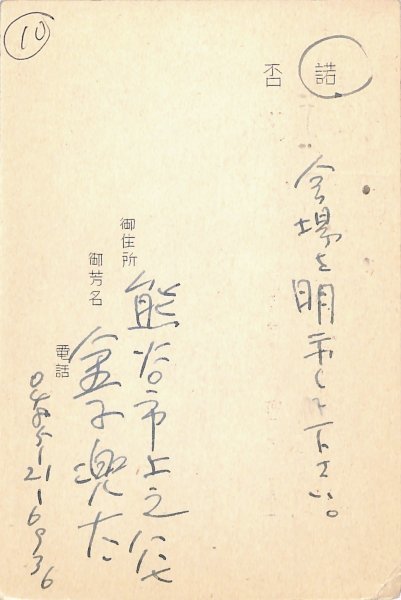 諾
会場を明示して下さい。
否
御住所
熊谷市上之
御芳名
金子兜太
電話
0485-21-6936
10